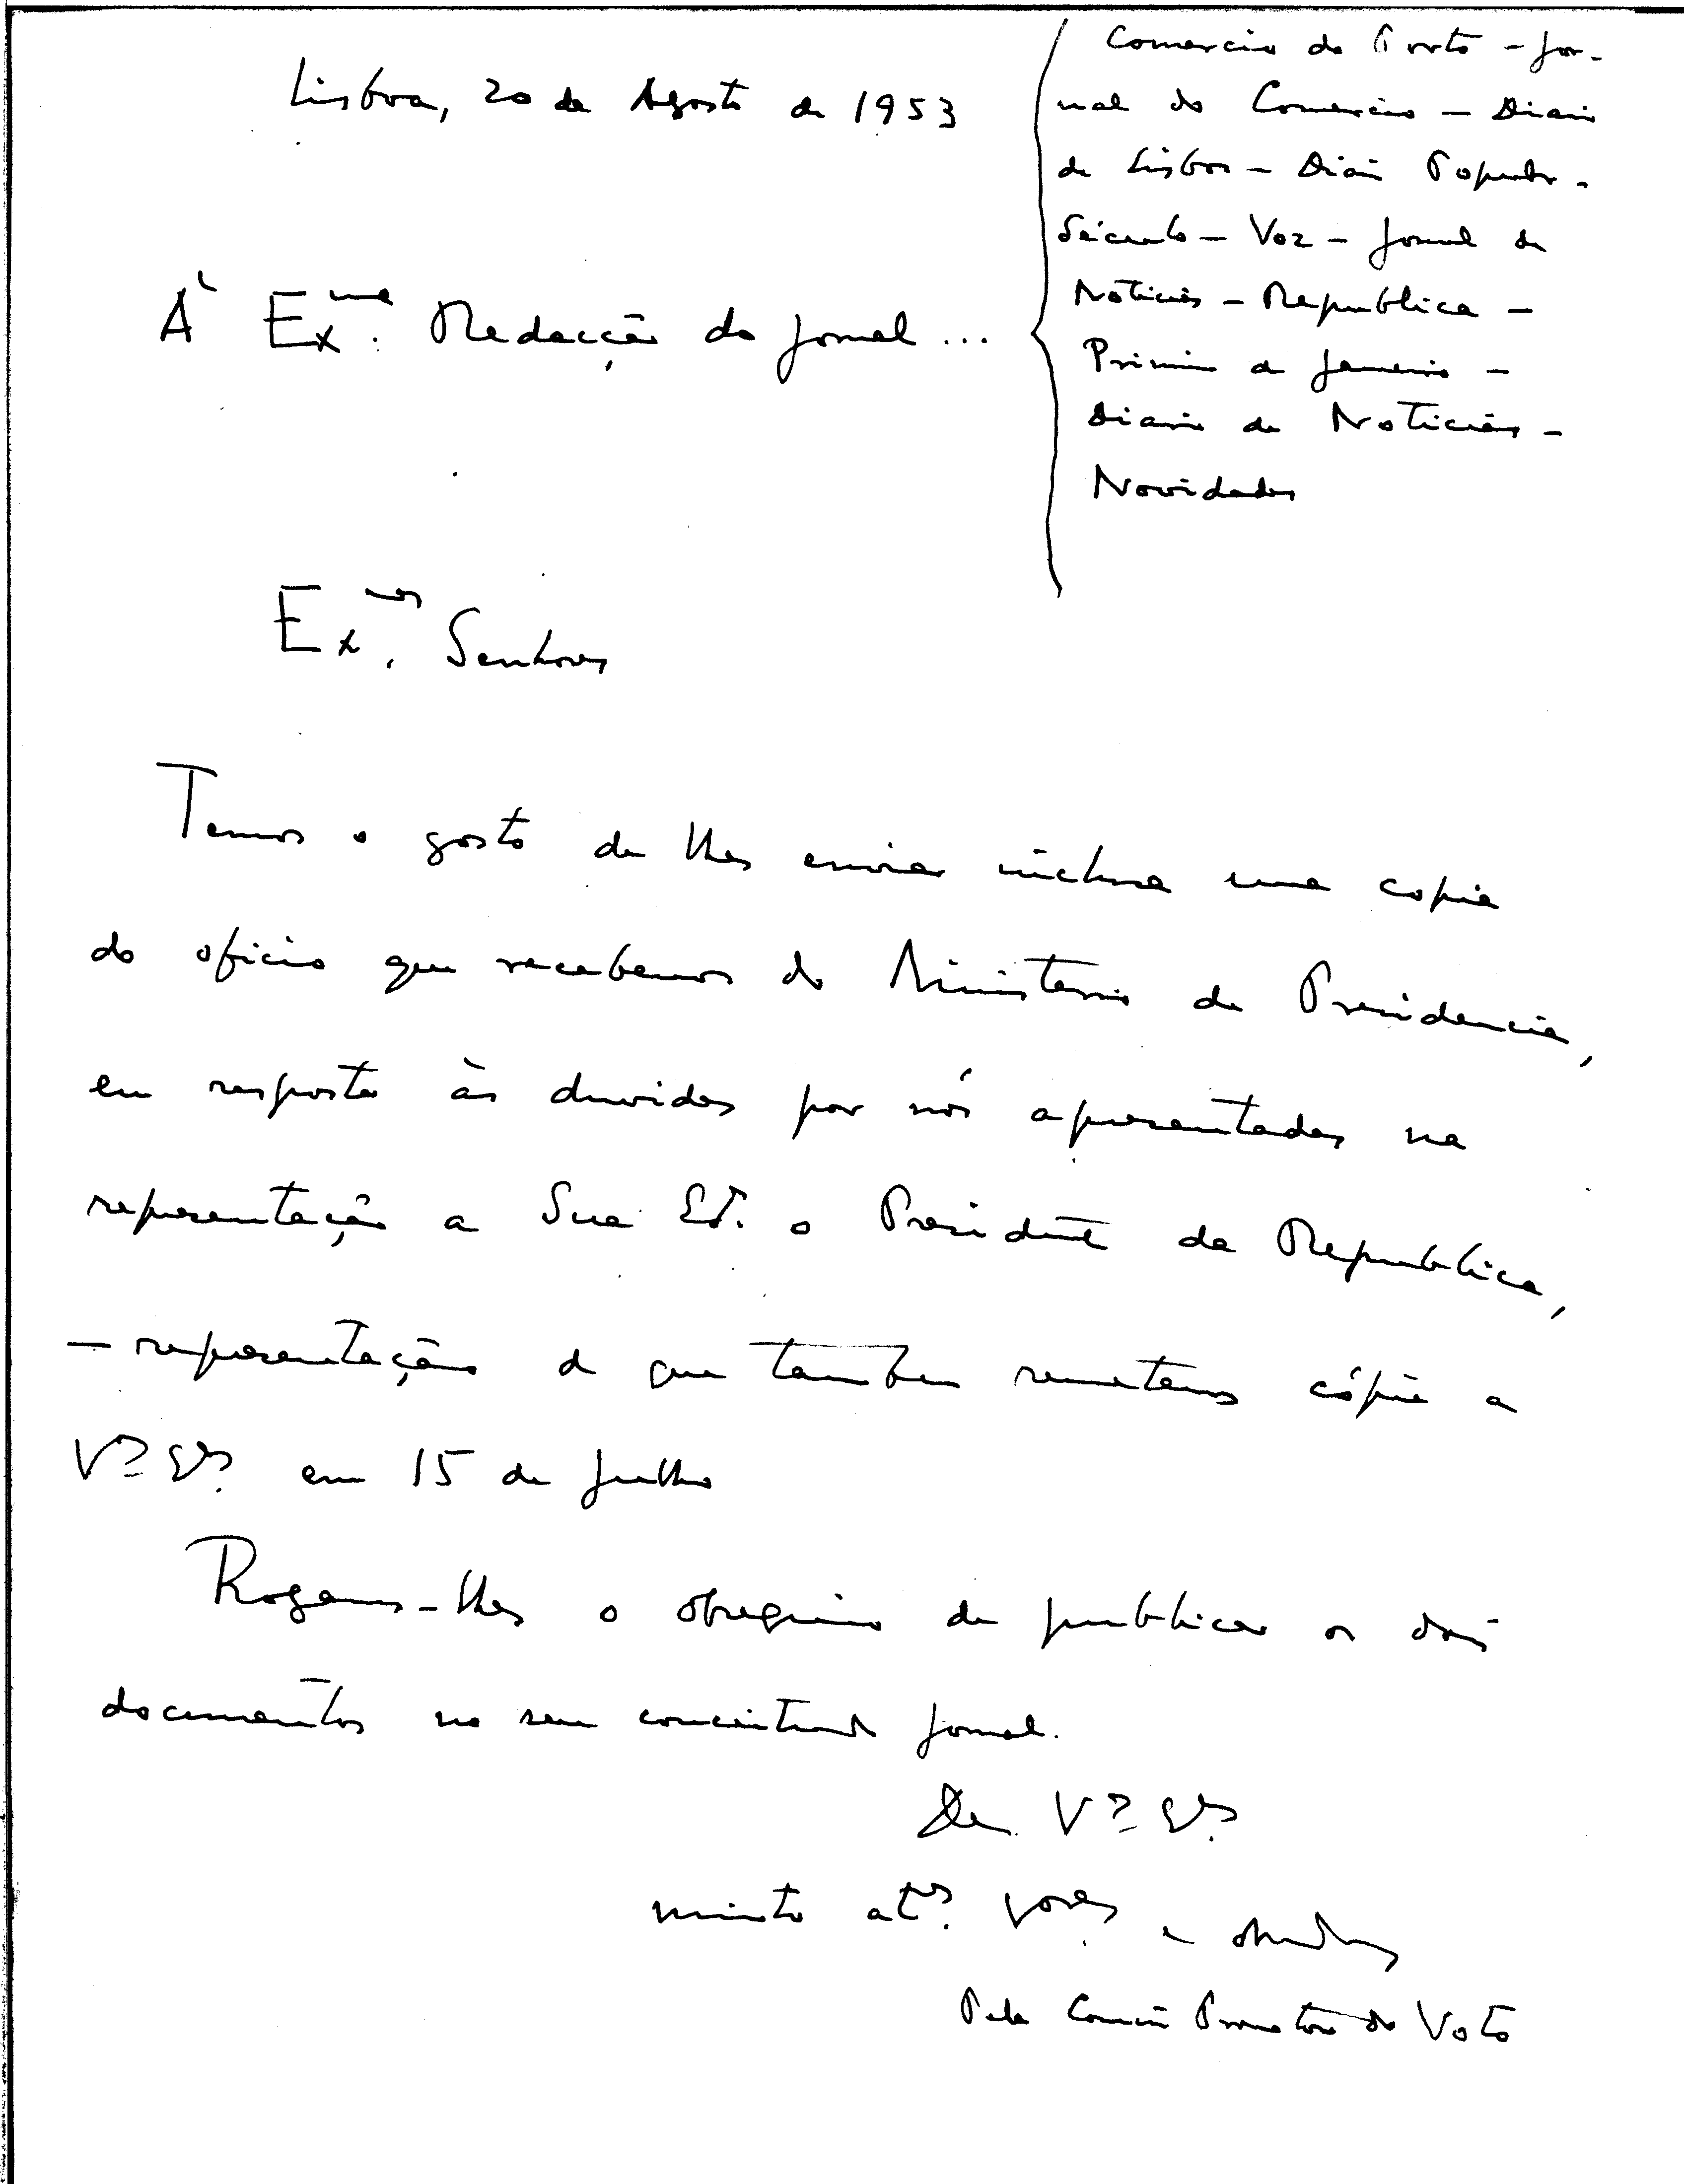 Lisboa, 20 de Agosto de 1953
À Ex.ma Redacção do Jornal ...
Comercio do Porto - Jor-
nal do Comercio - Diario
de Lisboa - Diário Popular -
Século - Voz - Jornal de
Noticias - Republica -
Primeiro de Janeiro -
Diario de Noticias -
Novidades
Ex.mos Senhores
Temos o gosto de lhes enviar inclusa uma copia
do oficio que recebemos do Ministerio da Presidencia,
em resposta às duvidas por nós apresentadas na
representação a Sua Ex.ª o Presidente da Republica,
- representação de que tambem remetemos cópia a
V.as Ex.as em 15 de Julho
Rogamos-lhes o obsequio de publicar os dois
documentos no seu conceituado Jornal.
De V.as Ex.as
muito at.os V.ores e
Pela Comissão Promotora do Voto